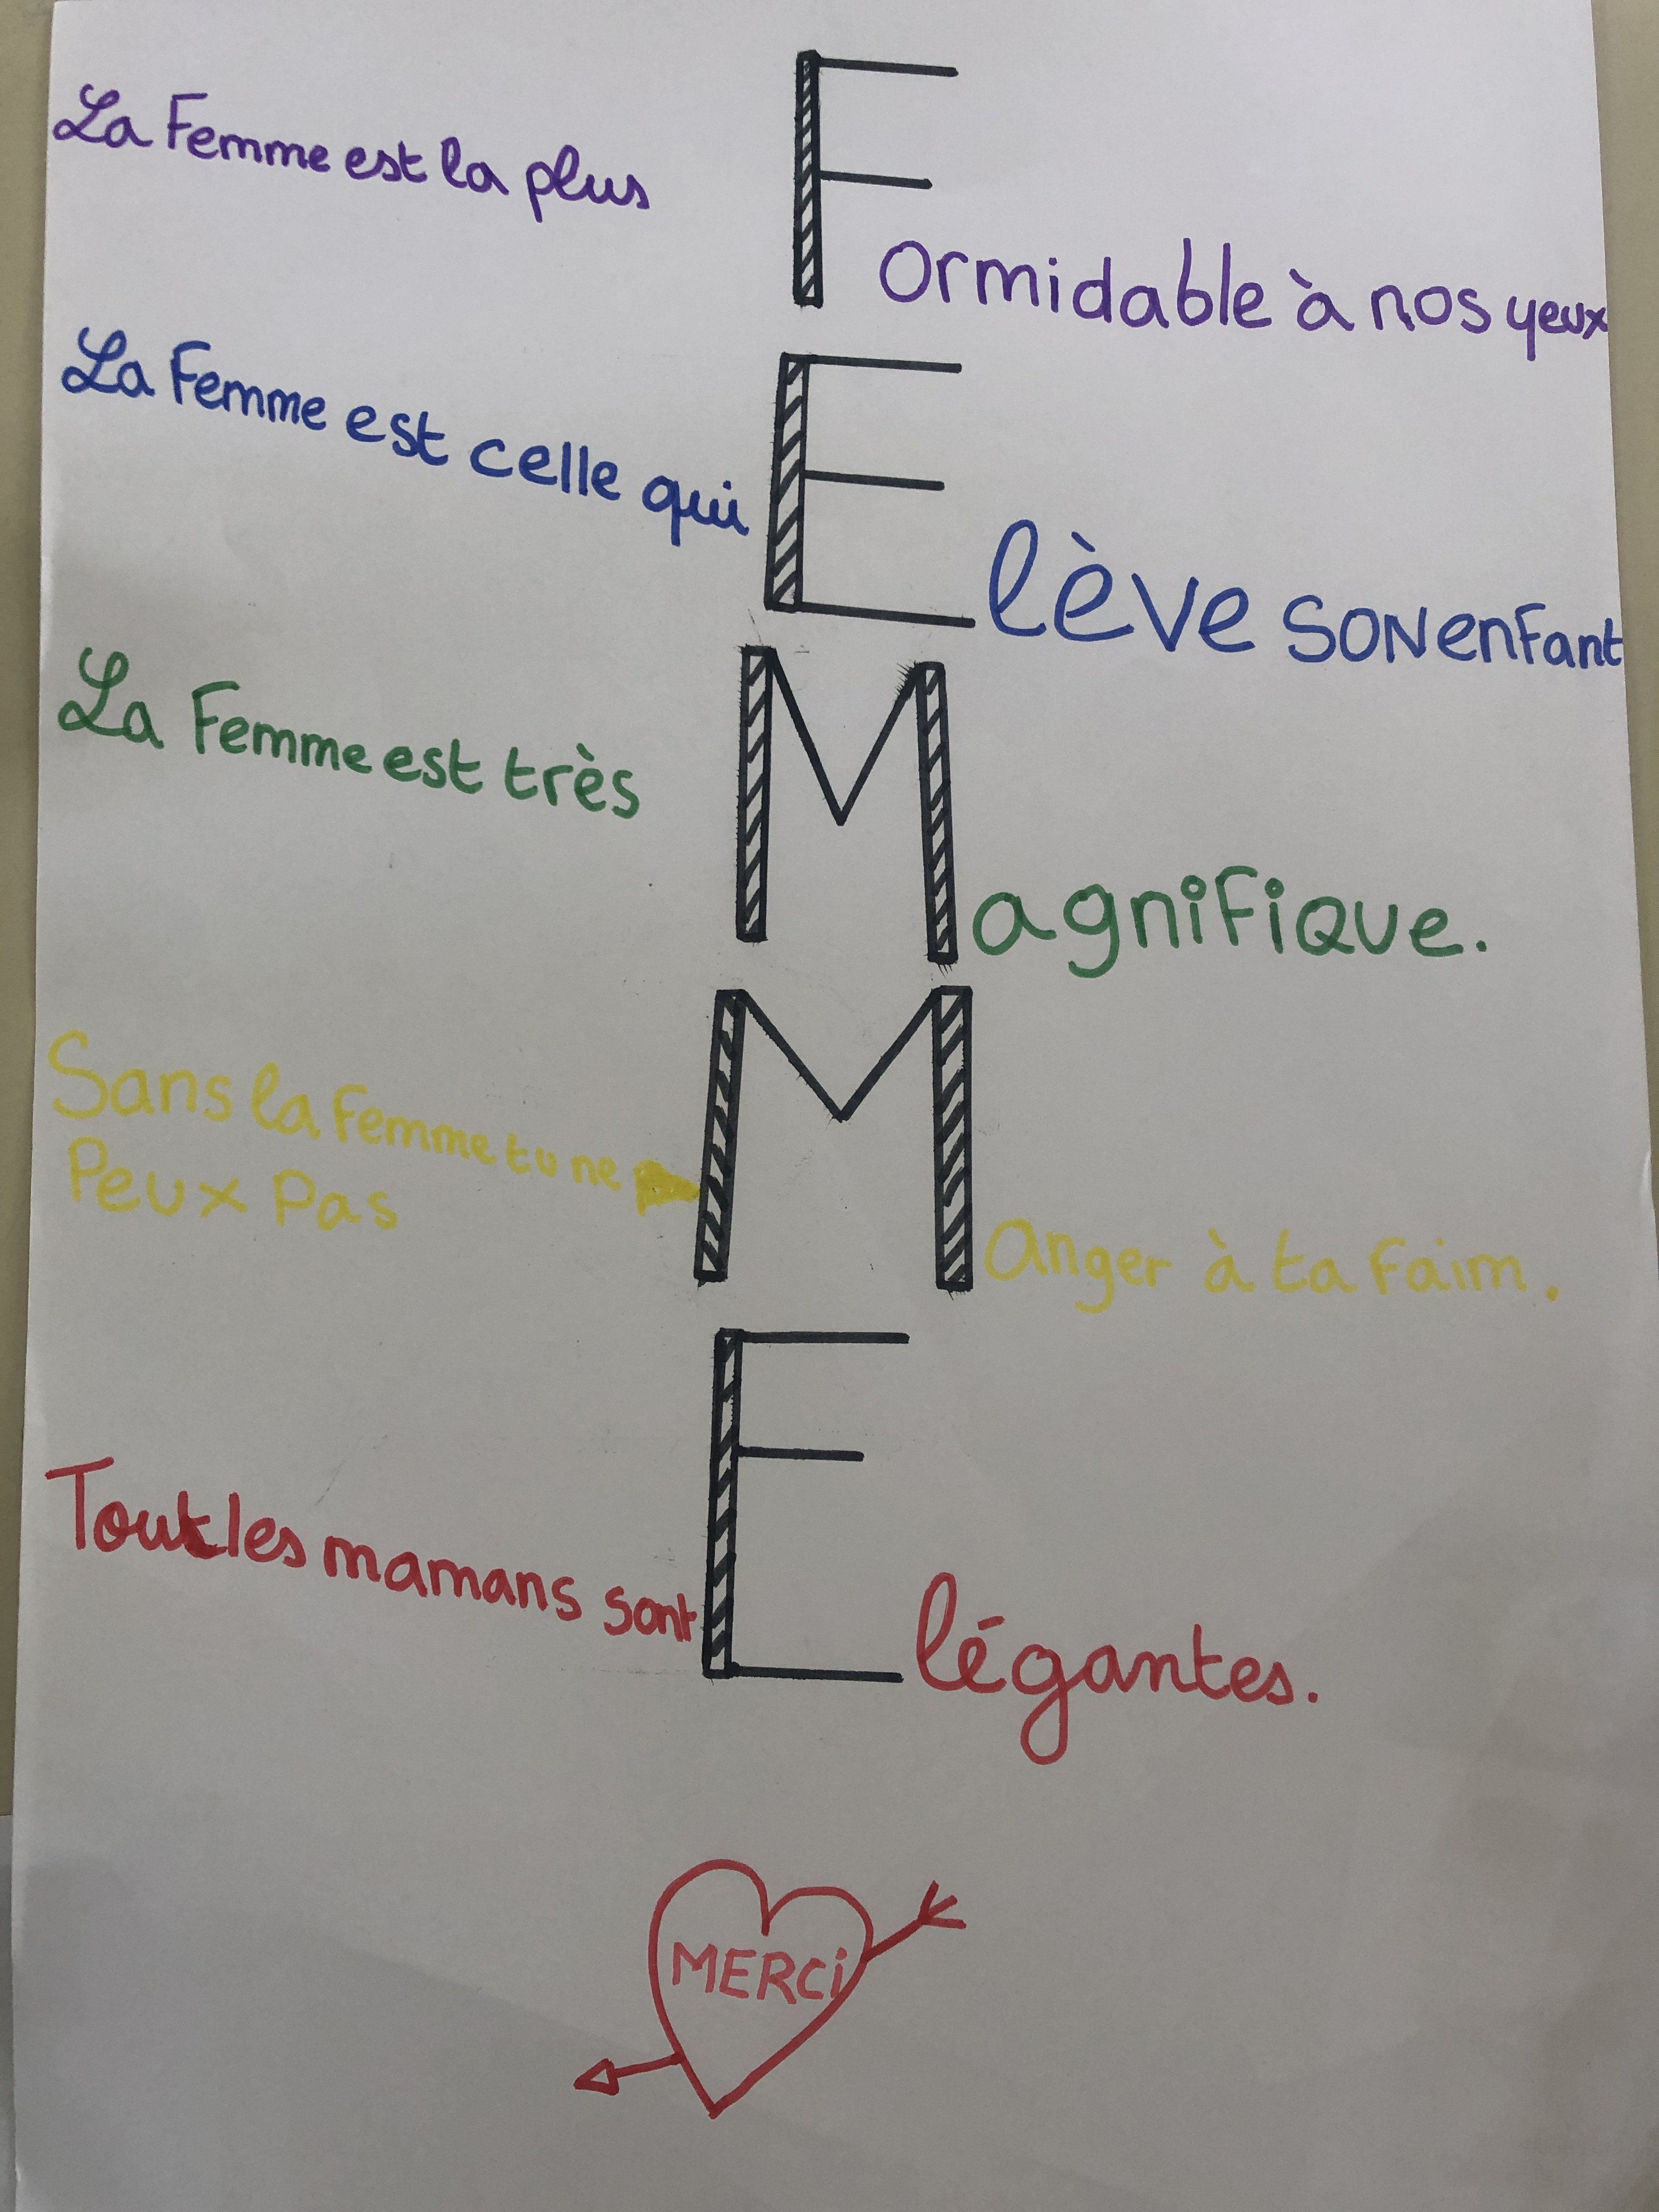 La Femme est la plus
Formidable à nos yeux
La Femme est celle qui
Elève SON enfant
La Femme est très
Magnifique.
Sans la femme tu ne
Peux Pas
Manger à ta faim.
Tout les mamans sont
Elégantes.
MERCi